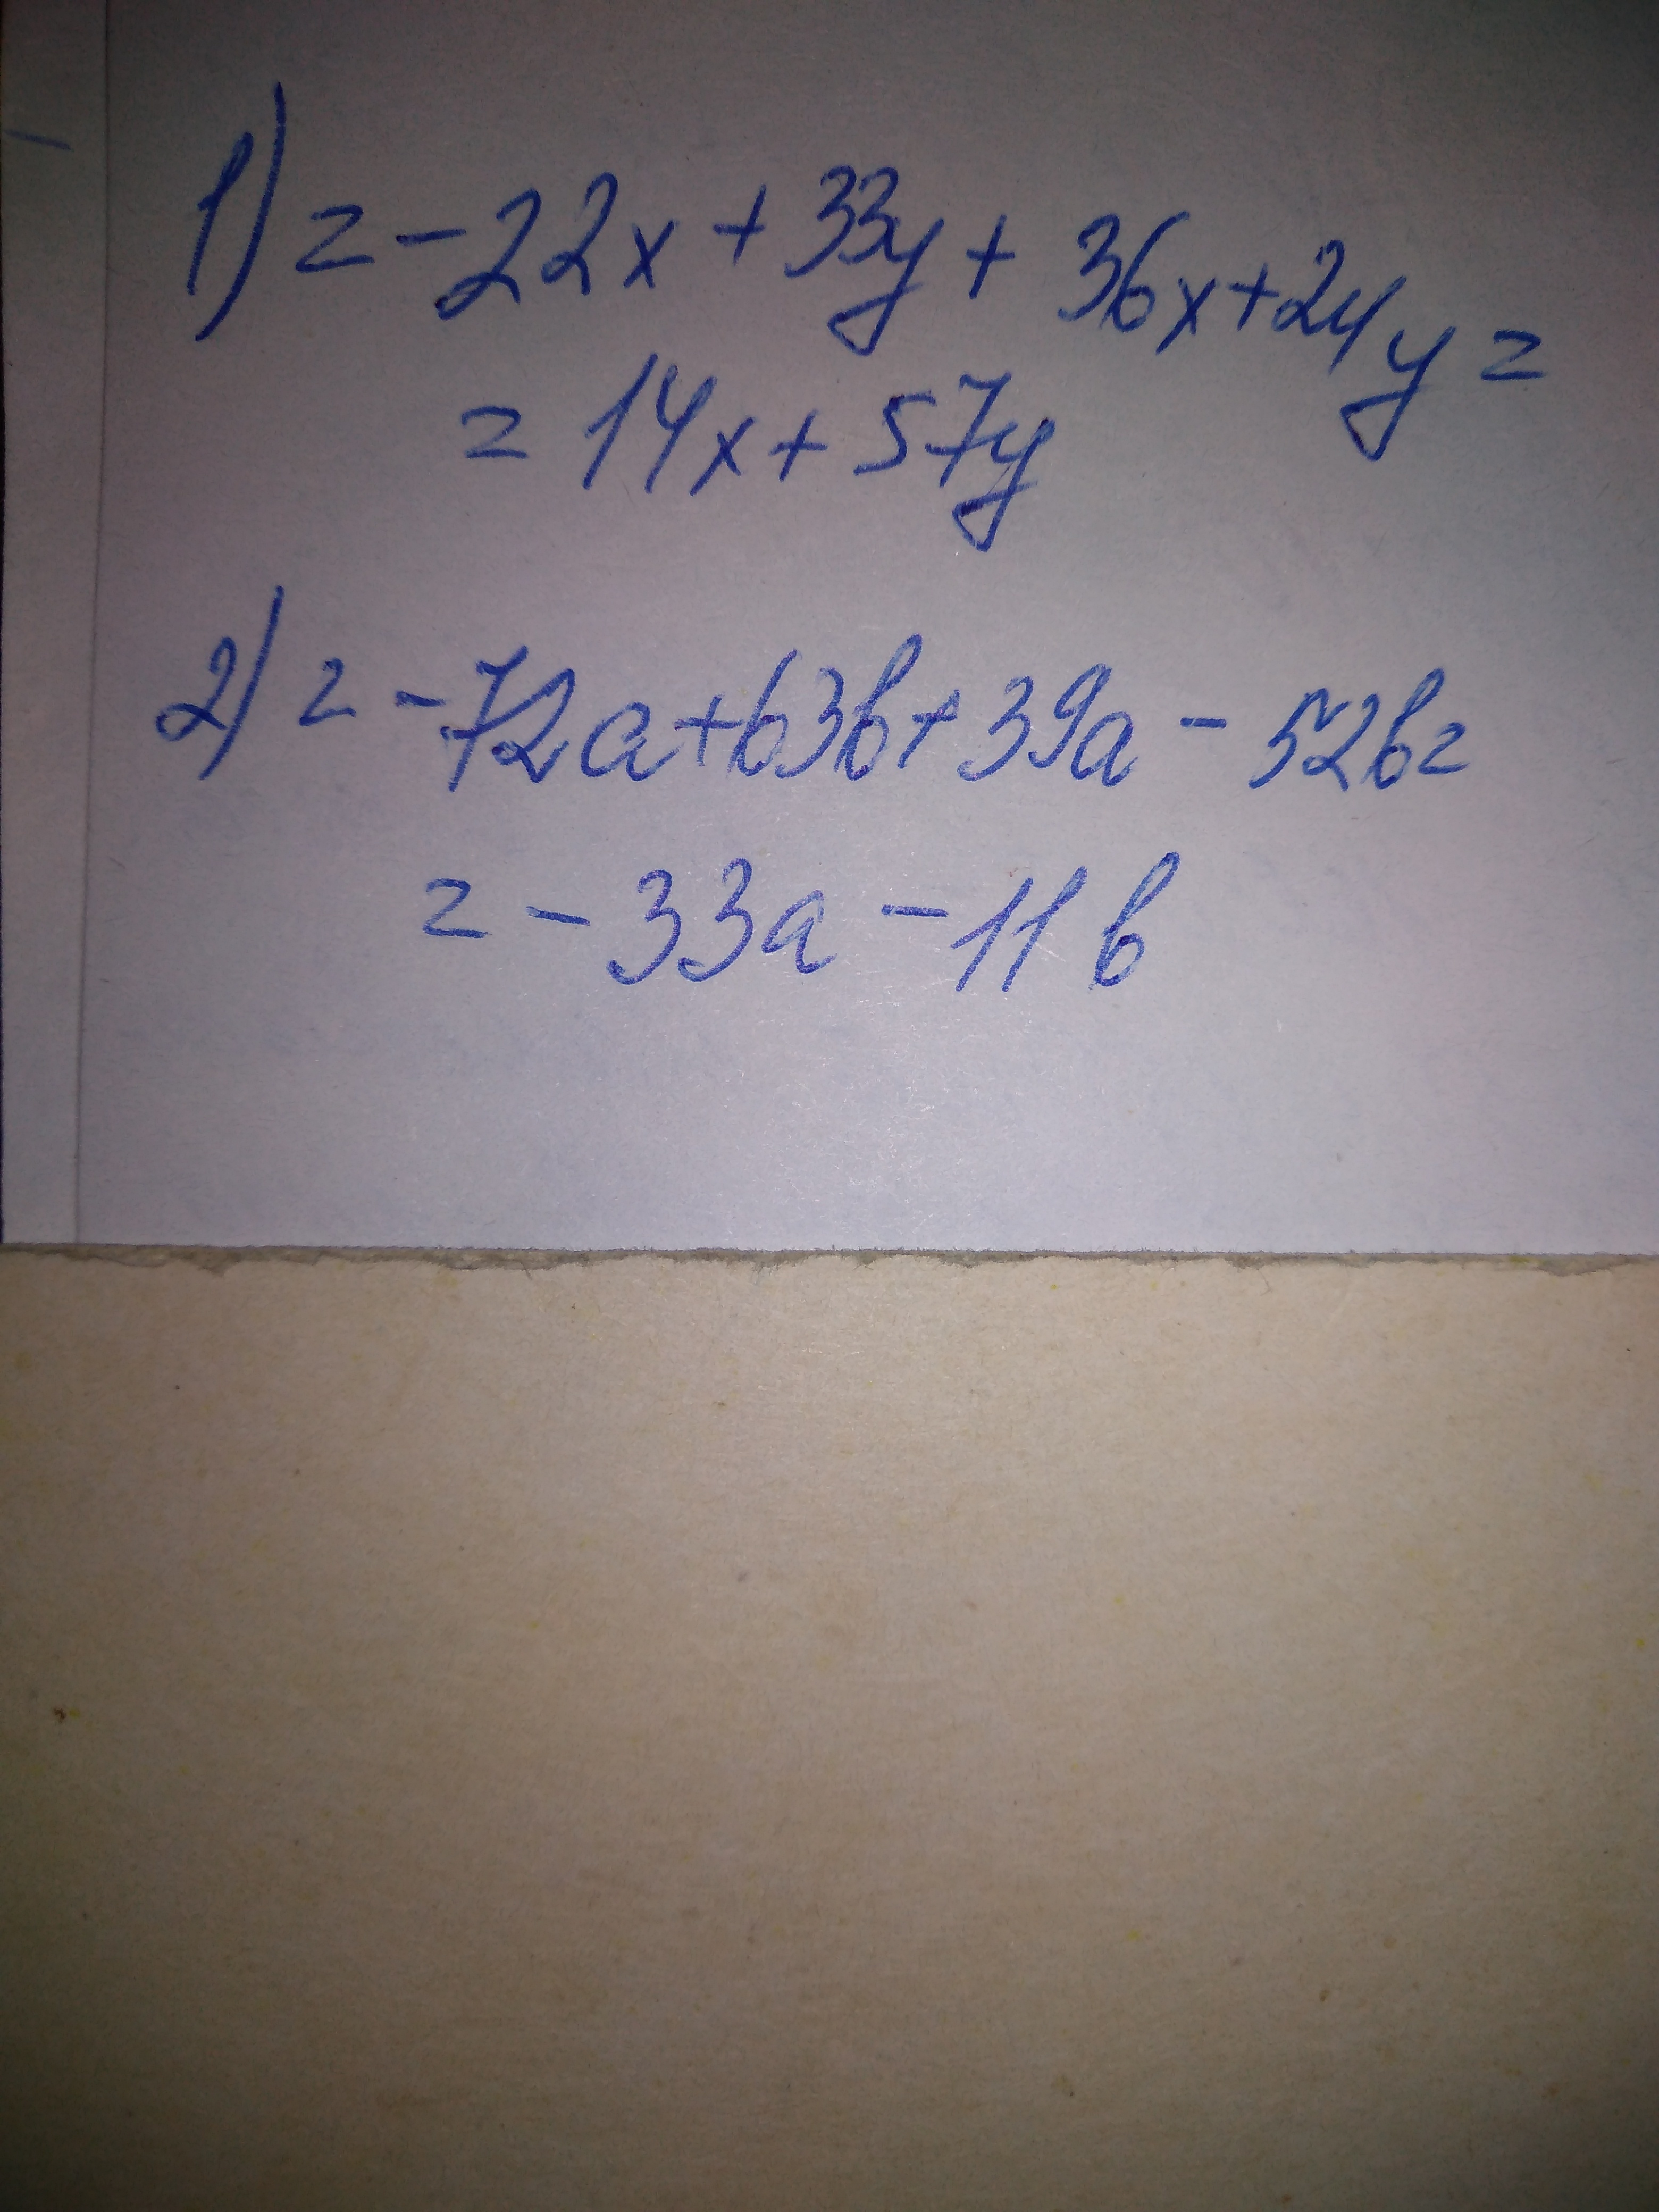 1) = -22x + 33y + 36x + 24y =
= 14x + 57y
2) = -72a + 63b + 39a - 52b =
= -33a - 11b